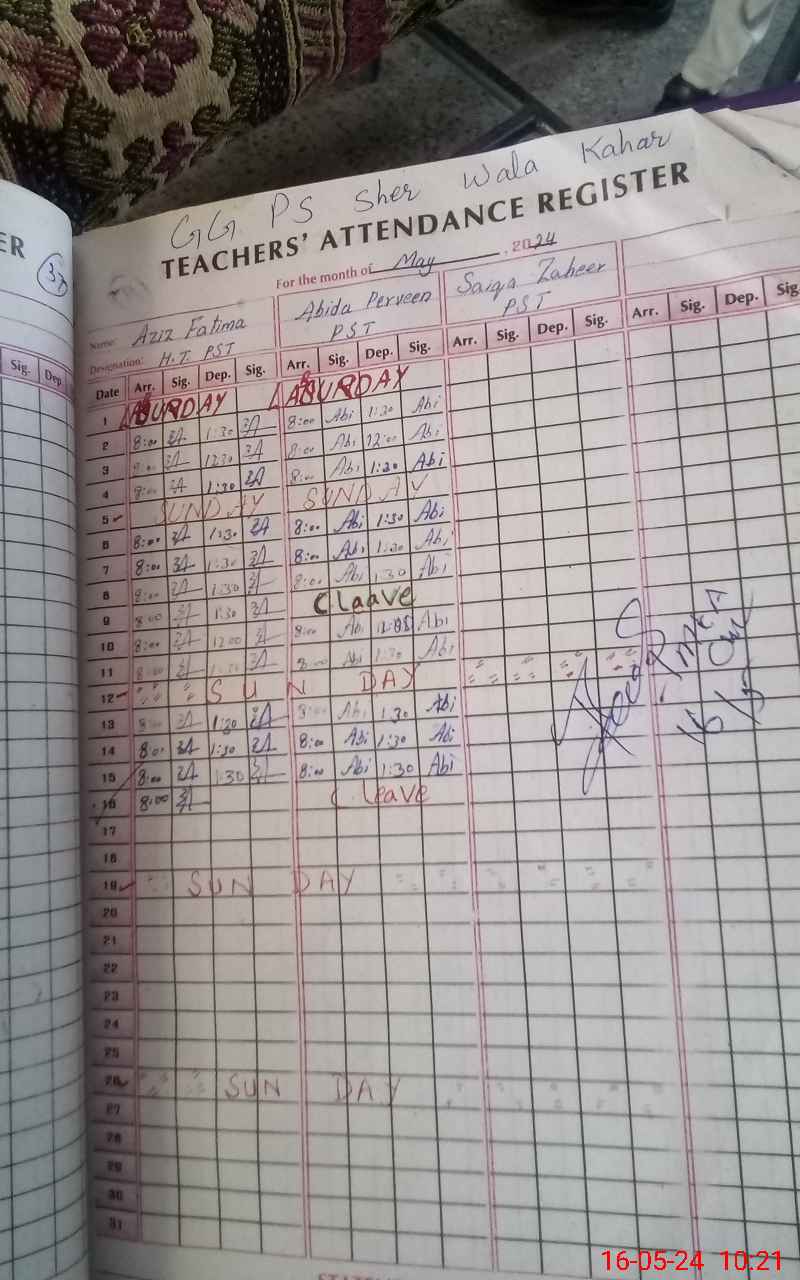 GG PS Sher Wala Kahar
ER
TEACHERS' ATTENDANCE REGISTER
For the month of May, 2024
Name: Aziz Fatima Abida Perveen Saiqa Zaheer
Designation: H.T. PST PST PST
Sig. Dep.
Date Arr. Sig. Dep. Sig. Arr. Sig. Dep. Sig. Arr. Sig. Dep. Sig. Arr. Sig. Dep. Sig.
1
2 8:00 1:30 8:00 Abi 1:30 Abi
3 8:00 12:00 Abi 12:00 Abi
4 8:00 1:30 8:00 Abi 1:30 Abi
5 SUNDAY SUNDAY
6 8:00 1:30 8:00 Abi 1:30 Abi
7 8:00 1:30 8:00 Abi 1:30 Abi
8 8:00 1:30 8:00 Abi 1:30 Abi
9 8:00 1:30 C Laave
10 8:00 12:00 8:00 Abi Abi
11 8:00 1:30 8:00 Abi 1:30 Abi
12 SUN DAY
13 8:00 1:30 8:00 Abi 1:30 Abi
14 8:00 1:30 8:00 Abi 1:30 Abi
15 8:00 1:30 8:00 Abi 1:30 Abi
16 8:00 C Leave
17
18
19 SUN DAY
20
21
22
23
24
25
26 SUN DAY
27
28
29
30
31
16-05-24 10:21